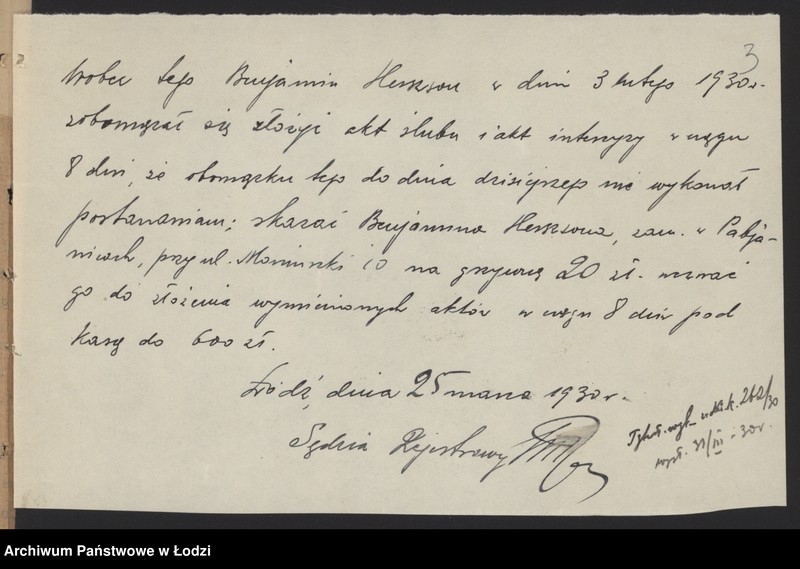 3
Wobec tego Benjamin Herszson w dniu 3 lutego 1930 r.
zobowiązał się złożyć akt ślubu i akt intercyzy w ciągu
8 dni, że obowiązku tego do dnia dzisiejszego nie wykonał
postanawiam: skazać Benjamina Herszsona, zam. w Pabja-
nicach, przy ul. Moniuszki 10 na grzywnę 20 zł. wezwać
go do złożenia wymienionych aktów w ciągu 8 dni pod
karą do 600 zł.
Łódź, dnia 25 marca 1930 r.
Sędzia Rejestrowy
262/30
wysł. 31/III - 30 r.
Archiwum Państwowe w Łodzi